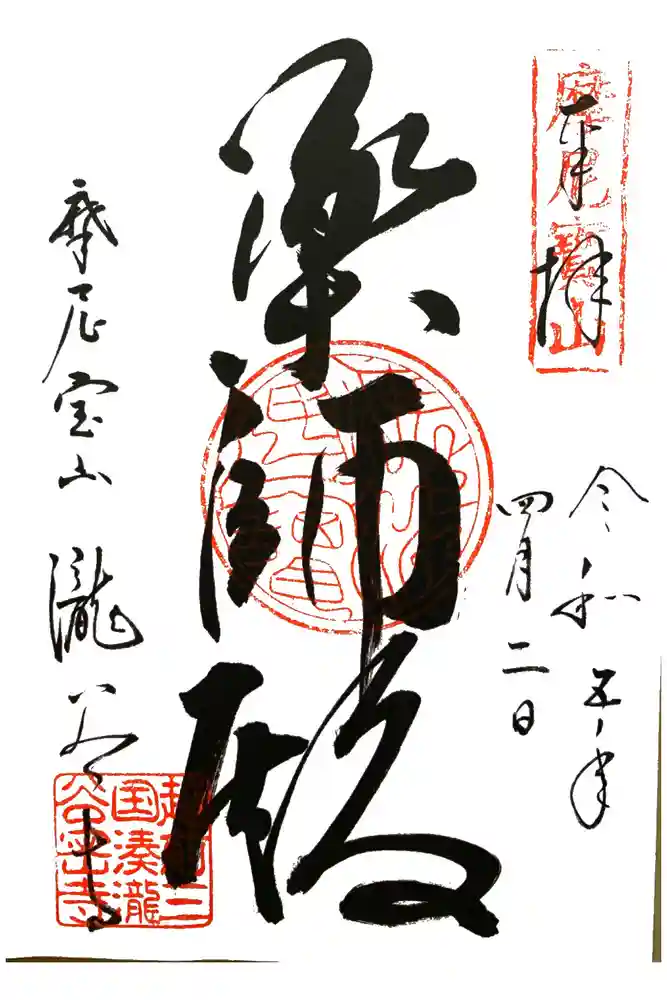 奉拝
摩尼寶山
令和五年
四月二日
薬師殿
摩尼宝山 瀧谷寺
越前三
国湊瀧
谷密寺